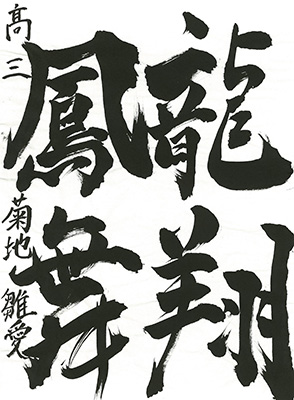 龍翔
鳳舞
高三 菊地雛愛